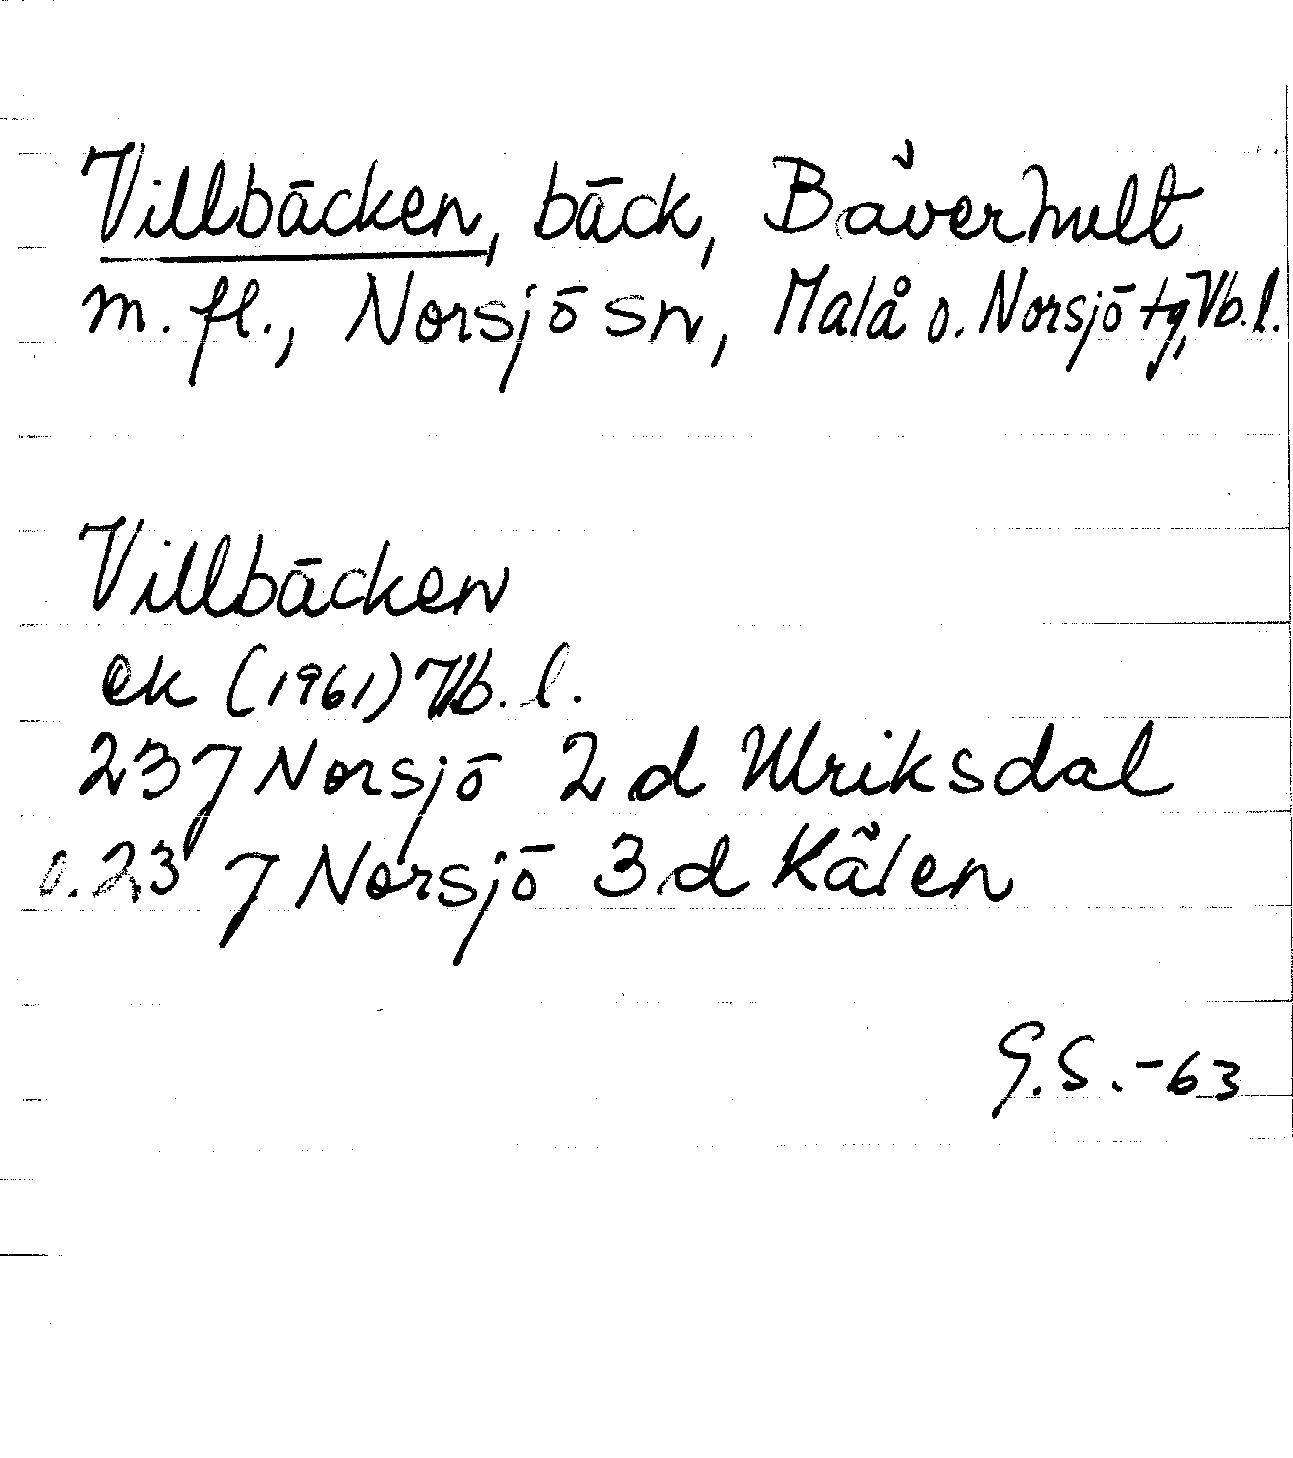 Villbäcken, bäck, Bäverhult
m. fl., Norsjö sn, Malå o. Norsjö tg, Vb. l.
Villbäcken
ek (1961) Vb. l.
23 7 Norsjö 2 d Ulriksdal
o. 23 7 Norsjö 3 d Kålen
G.S. -63